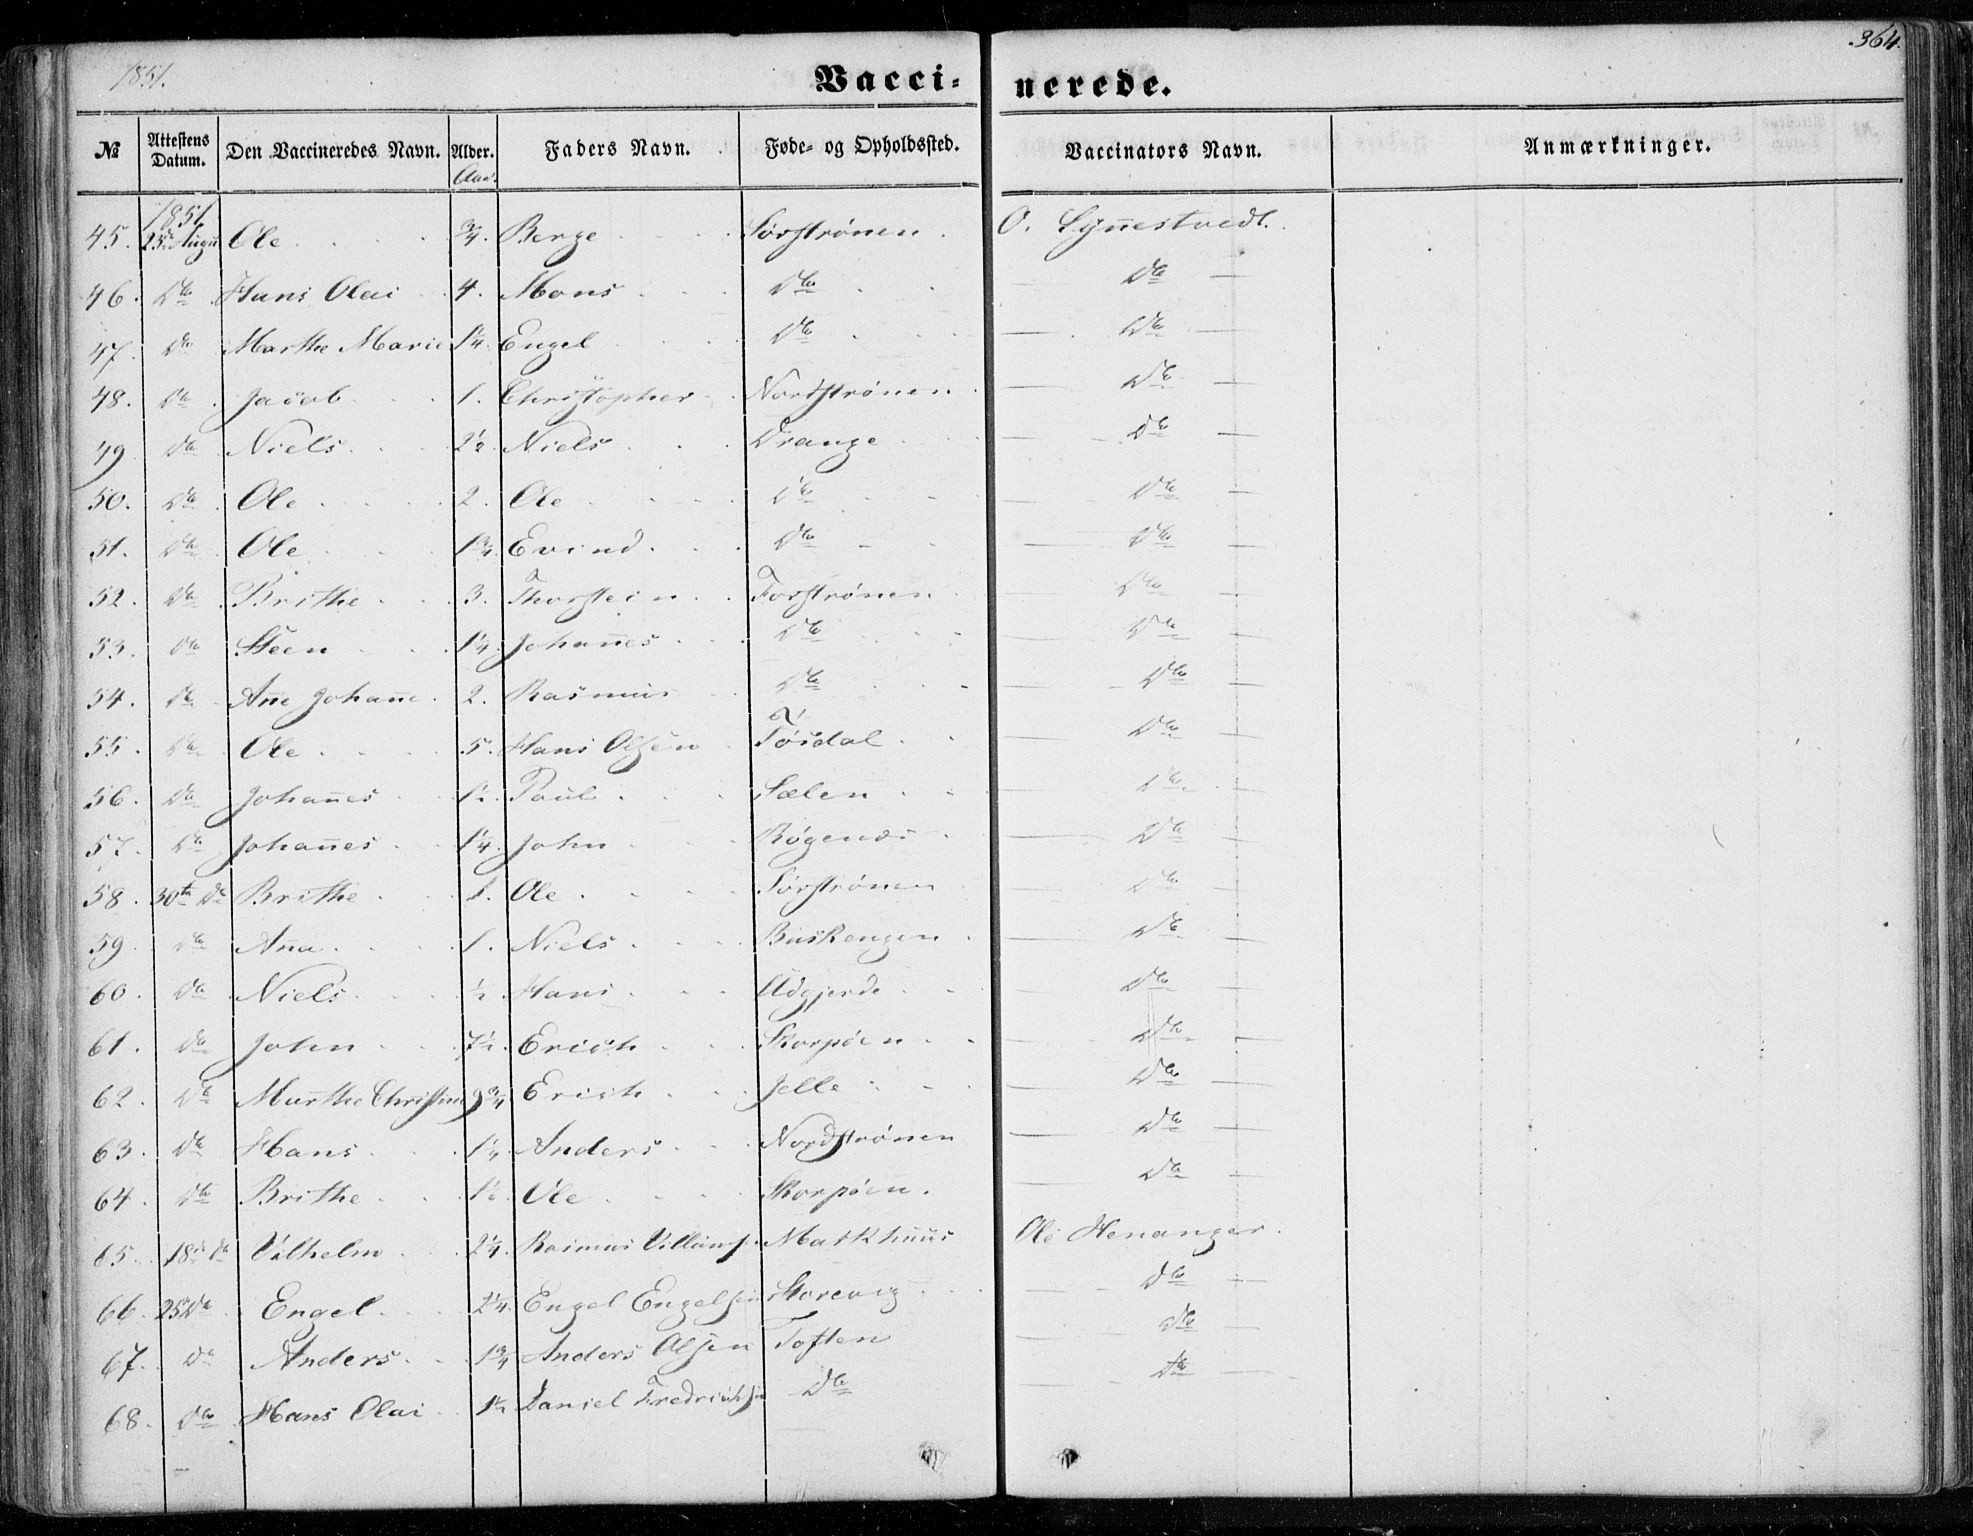 1851.
Vacci- nerede.
364.
№ Attestens Datum. Den Vaccineredes Navn. Alder. Aar. Faders Navn. Føde- og Opholdssted. Vaccinators Navn. Anmærkninger.
1851
45. 25de Augu Ole 3/4. Berge Sørstrønen. O. Sÿnestvedt.
46. Do Hans Olai 4. Mons Do Do
47. Do Marthe Marie 1 1/4. Engel Do Do
48. Do Jacob 1. Christopher Nordstrønen. Do
49 Do Niels 2 1/2 Niels Drange Do
50. Do Ole 2. Ole Do Do
51. Do Ole 1 3/4 Evind. Do Do
52. Do Brithe 3. Thorstein Forstrønen Do
53. Do Steen 1 1/4. Johan̄es Do Do
54. Do An̄e Johan̄e. 2. Rasmus Do Do
55. Do Ole 5. Hans Olsen Tøsdal Do
56. Do Johan̄es 1 1/2. Paul Sælen Do
57. Do Johan̄es 1 1/4. John Røgenæs Do
58. 30te Do Brithe 1. Ole Sørstrønen Do
59 Do An̄a 1. Niels Buskengen Do
60. Do Niels 1/2. Hans Udgjerde Do
61. Do John 7 1/2. Erich Skorpøen Do
62. Do Marthe Christine 9 3/4 Erich Jelle Do
63. Do Hans 1 1/4 Anders Nordstrønen Do
64. Do Brithe 1 1/2 Ole Skorpøen. Do
65. 18de Do Vilhelm 2 1/4. Rasmus Villumsen Markhuus Ole Henanger.
66. 25de Do Engel 2 1/4. Engel Engelsen Storevig Do
67. Do Anders 1 3/4 Anders Olsen Toften Do
68. Do Hans Olai 1 1/2 Daniel Fredrichsen Do Do